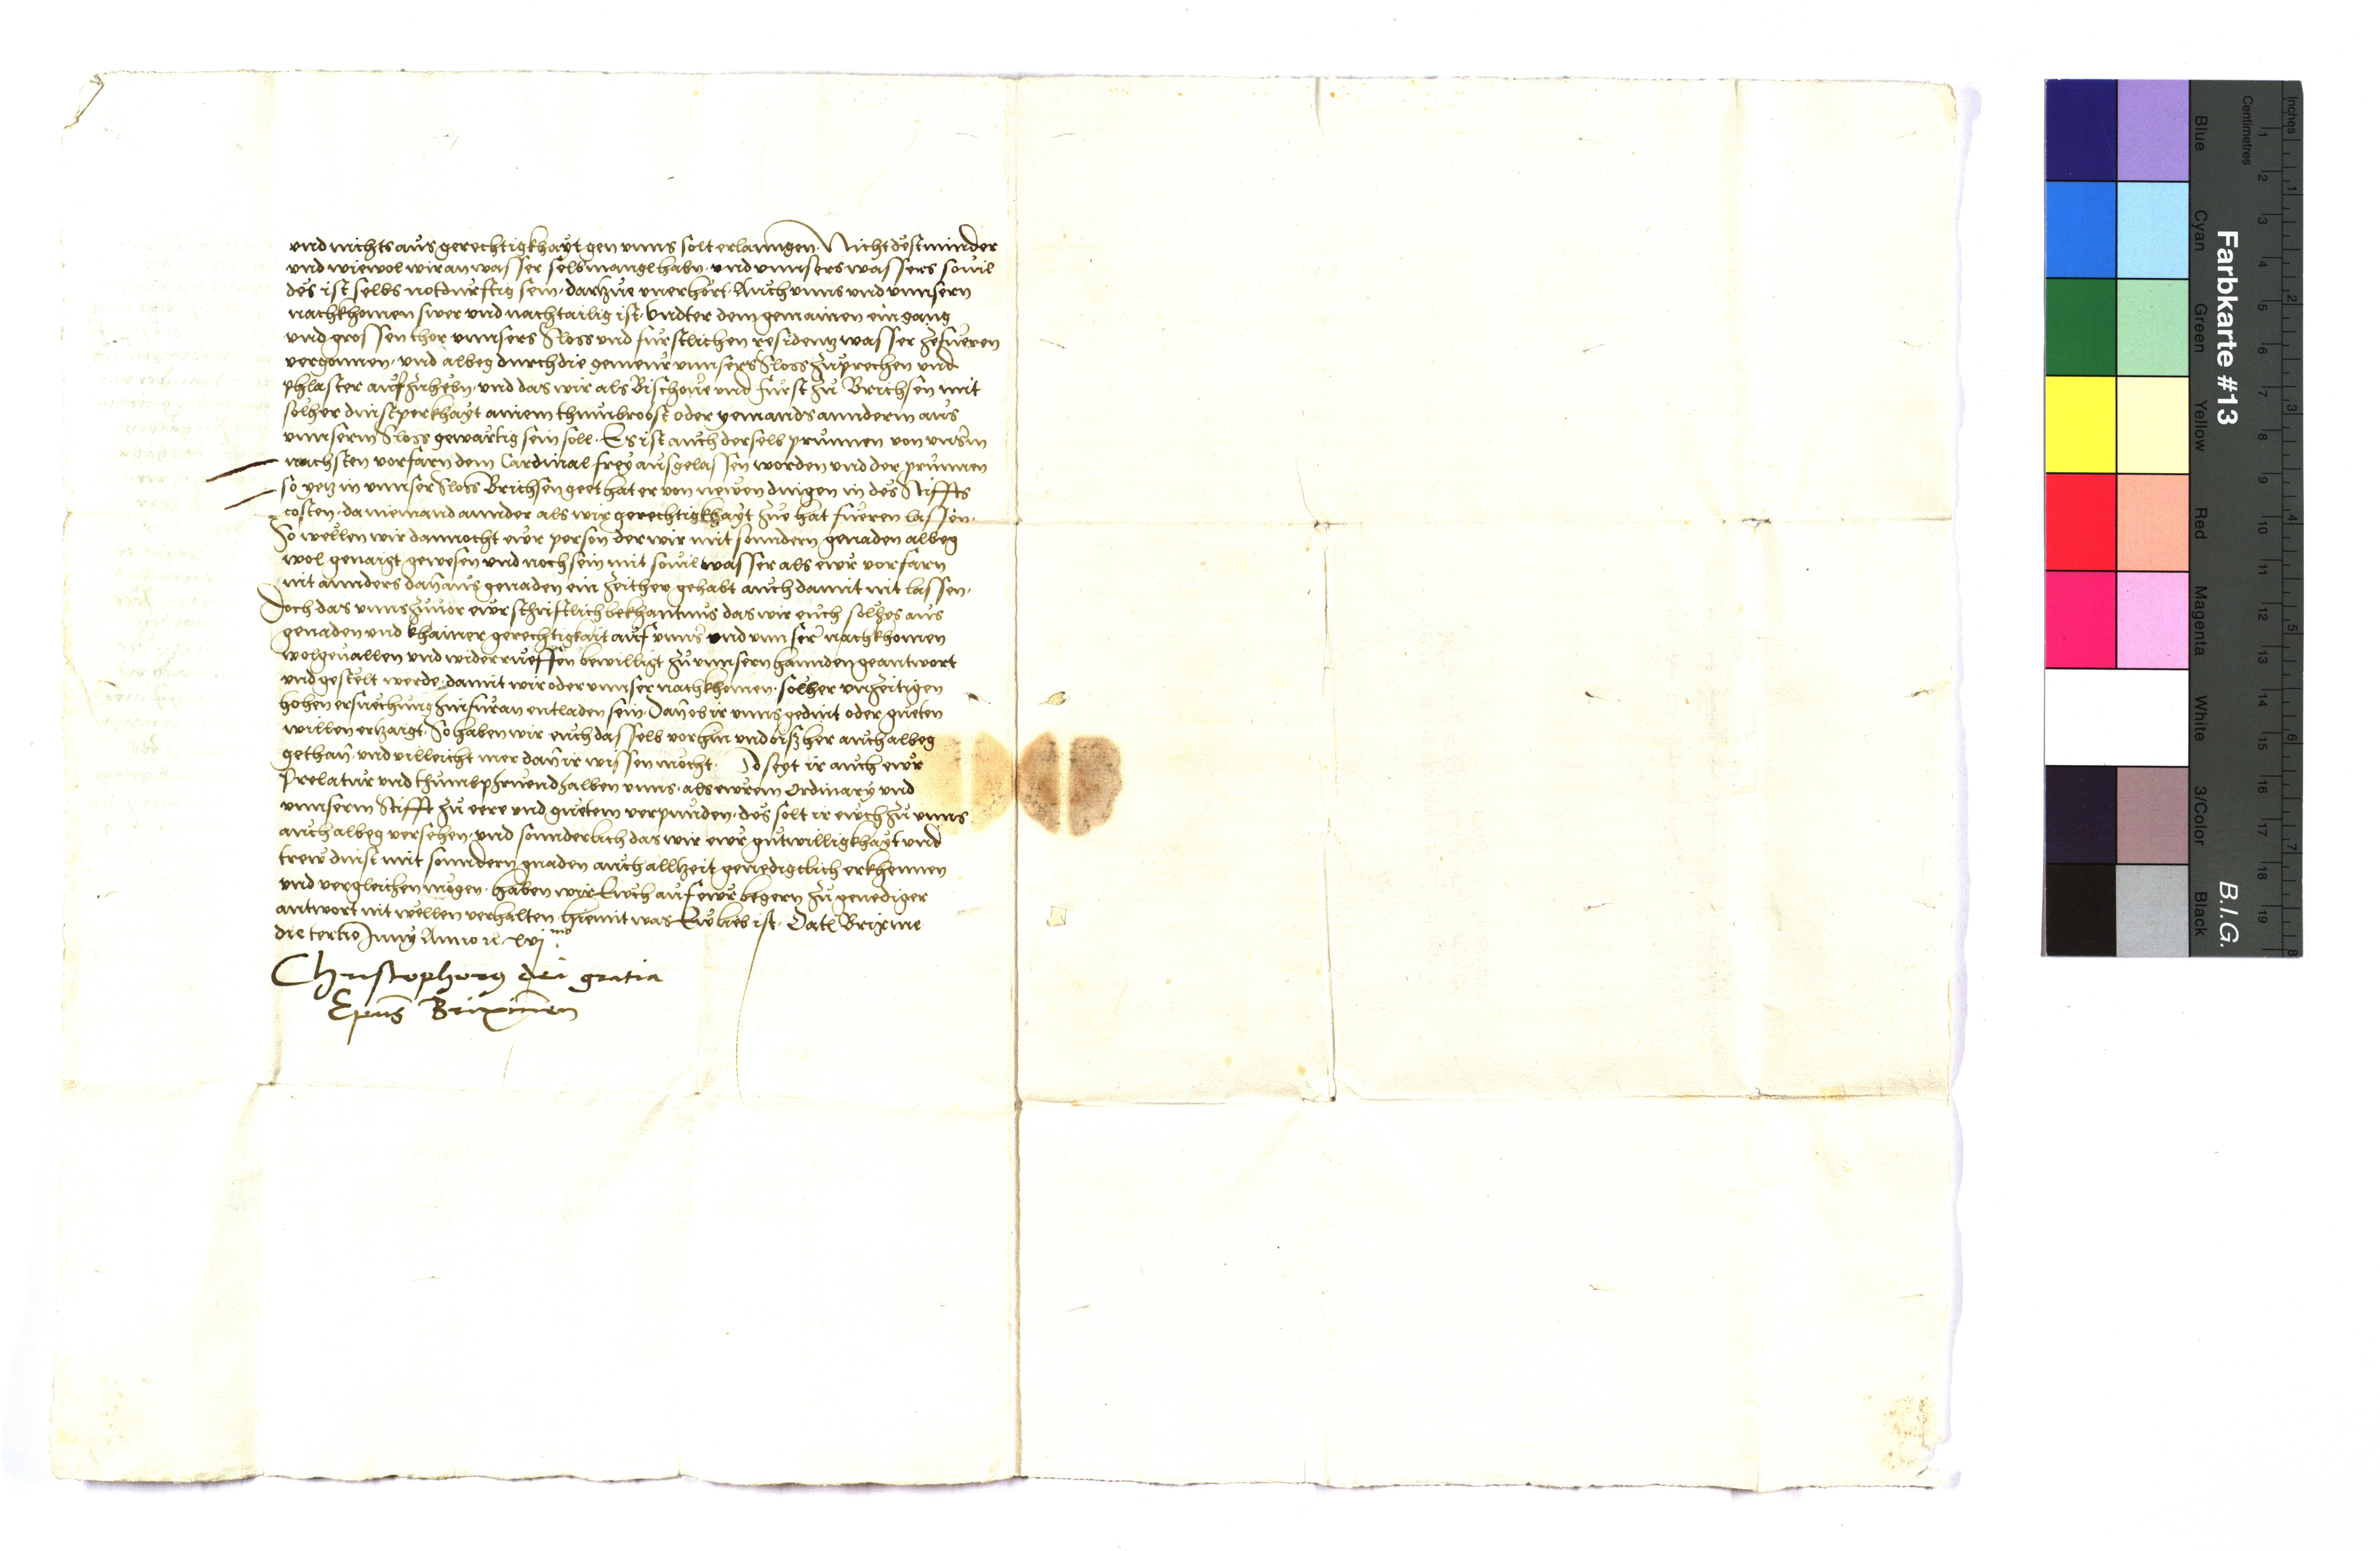 vnd nichts aus gerechtigkhayt gen vnns solt erlanngen. Nichtdestminder
vnd wiewol wir an wasser selbs mangl habn. vnd vnnsers wassers souil
des ist selbs notdurftig sein. dartzue vnerhört. Auch vnns vnd vnnsern
nachkhomen swer vnd nachtailig ist. Vndter dem gemainen eingang
vnd grossen thor vnnsers Sloss vnd furstlichen residentz wasser zefueren
vergonnen. vnd albeg durch die gemeur vnnsers Sloss zuprechen vnd
phlaster aufzuhebn. vnd das wir als Bischoue vnd furst zu Brichsen mit
solher dinstperkhayt ainem thumbrobst oder yemands annderm aus
vnnserm Sloss gewartig sein soll. Es ist auch derselb prunnen von vnserm
nachsten vorfarn dem Cardinal frey ausgelassen worden vnd der prunnen
so yetz in vnnser Sloss Brichsen geet hat er von newen dingen in des Stiffts
costen. da niemand annder als wir gerechtigkhayt zue hat fueren lassen.
So wellen wir dannocht ewr person der wir mit sonndern genaden albeg
wol genaigt gewesen vnd noch sein mit souil wasser als ewr vorfarn
nit annders dann aus genaden ein zeither gehabt auch damit nit lassen.
Doch das vnns zuuor ewr schriftlich bekhantnus das wir euch solhes aus
genaden vnd khainer gerechtigkait auf vnns vnd vnnser nachkhomen
wolgeuallen vnd widerrueffen bewilligt zu vnnsern hannden geantwort
vnd gestelt werde. damit wir oder vnnser nachkhomen. solher vnzeitigen
hohen ersuechung hinfuran entladen sein. Dann ob ir vnns gedint oder gueten
willen ertzaigt. So haben wir euch dasselb vorhin vnd bisher auch albeg
gethan. vnd villeicht mer dann ir wissen mocht. So seyt ir auch ewr
Prelatur vnd thumbphruend halben vnns. als ewrem Ordinary vnd
vnnserm Stifft zu eere vnd guetem verpunden. des solt ir euch zu vnns
auch albeg versehen. vnd sonnderlich das wir ewr gutwilligkhayt vnd
trew dinst mit sonndern gnaden auch alltzeit genedigclich erkhennen
vnd vergleichen mugen. haben wir Euch auf ewr begern zu genediger
antwort nit wellen verhalten. hiemit was Ew lieb ist. Datl Brixine
die tertio Juny Anno
Christophorus dei gratia
Epus Brixinen
Farbkarte #13
B.I.G.
Blue
Cyan
Green
Yellow
Red
Magenta
White
3/Color
Black
Centimetres
1 2 3 4 5 6 7 8 9 10 11 12 13 14 15 16 17 18 19
Inches
1 2 3 4 5 6 7 8